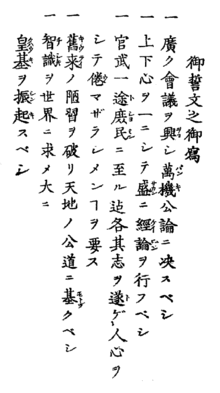 御誓文之御寫
一 廣ク會議ヲ興シ萬機公論ニ決スベシ
一 上下心ヲ一ニシテ盛ニ經論ヲ行フベシ
一 官武一途庶民ニ至ル迄各其志ヲ遂ゲ人心ヲ
シテ倦マザラシメンヿヲ要ス
一 舊来ノ陋習ヲ破リ天地ノ公道ニ基クベシ
一 智識ヲ世界ニ求メ大ニ
皇基ヲ振起スベシ